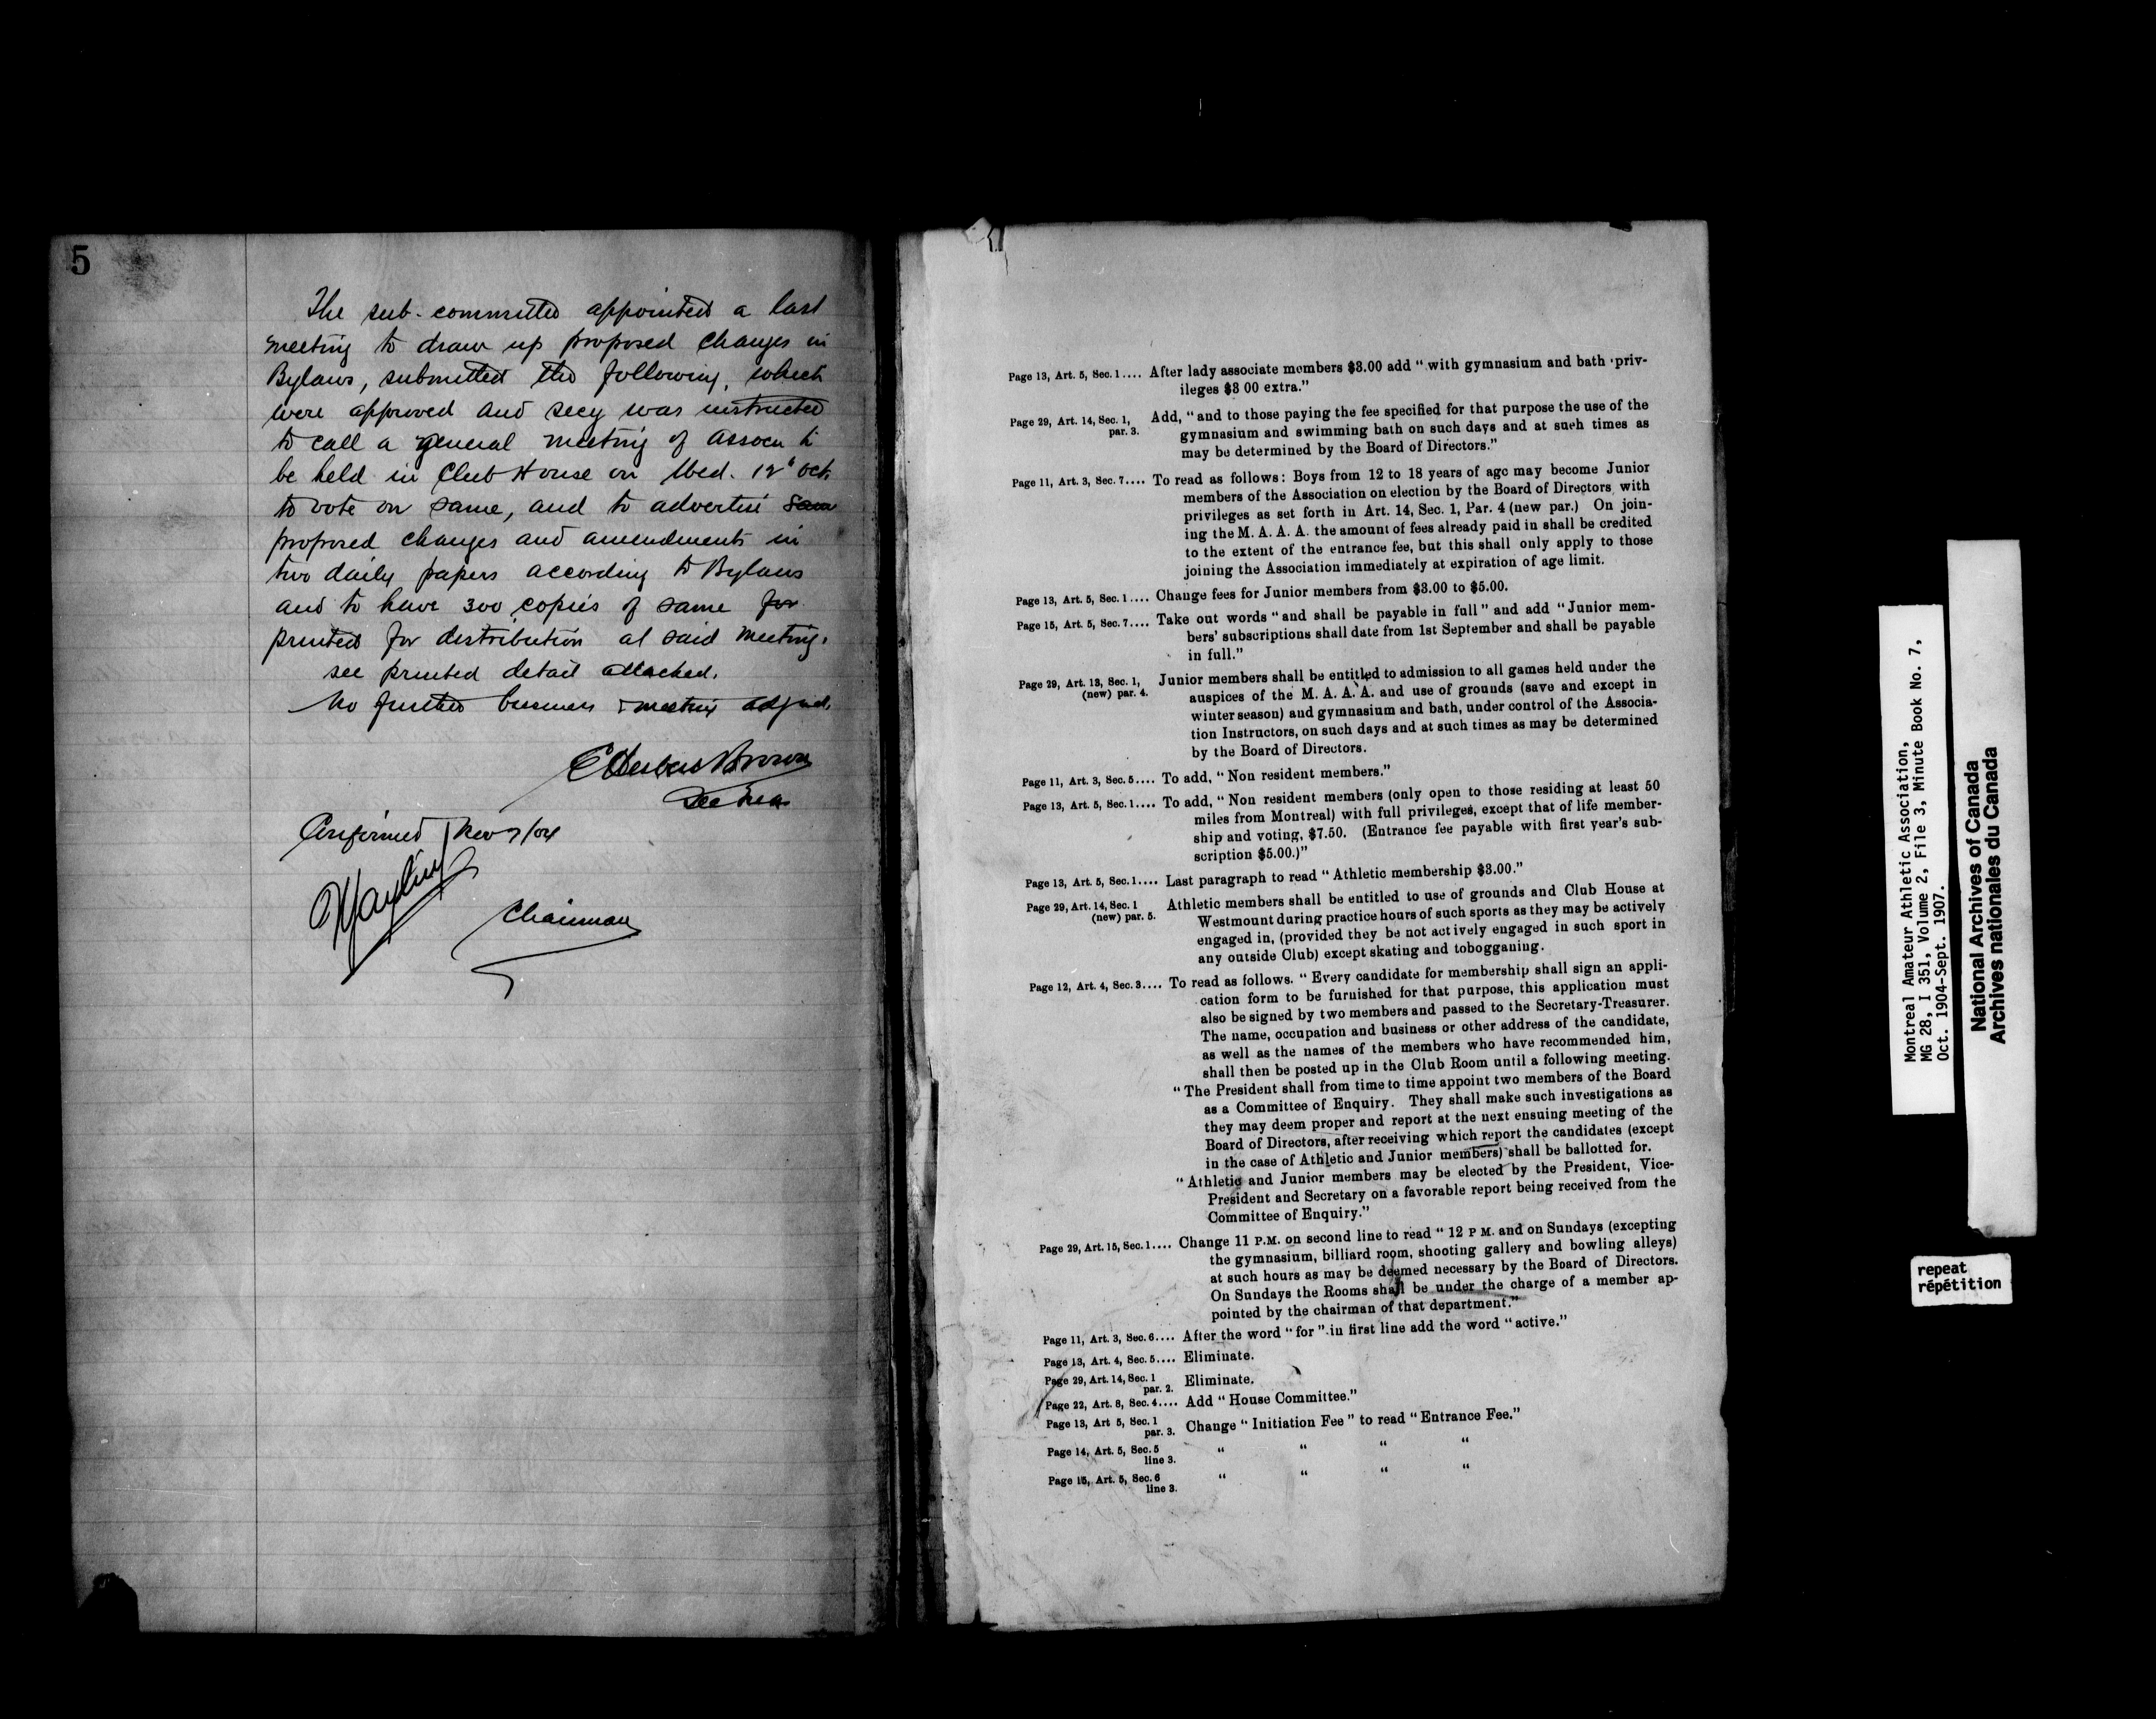 5
The sub-committee appointed a last
meeting to draw up proposed changes in
Bylaws, submitted the following, which
were approved and secy was instructed
to call a general meeting of Assocn to
be held in Club House on Wed. 12th Oct.
to vote on same, and to advertise same
proposed changes and amendments in
two daily papers according to Bylaws
and to have 300 copies of same for
printed for distribution at said meeting.
see printed detail attached.
No further business meeting adjnd.
Brown
Sec Treas
Confirmed Nov 7/04
Chairman
Page 13, Art. 5, Sec. 1.... After lady associate members $3.00 add “ with gymnasium and bath priv-
ileges $3 00 extra.”
Page 29, Art. 14, Sec. 1, par. 3. Add, “ and to those paying the fee specified for that purpose the use of the
gymnasium and swimming bath on such days and at such times as
may be determined by the Board of Directors.”
Page 11, Art. 3, Sec. 7.... To read as follows: Boys from 12 to 18 years of age may become Junior
members of the Association on election by the Board of Directors with
privileges as set forth in Art. 14, Sec. 1, Par. 4 (new par.) On join-
ing the M. A. A. A. the amount of fees already paid in shall be credited
to the extent of the entrance fee, but this shall only apply to those
joining the Association immediately at expiration of age limit.
Page 13, Art. 5, Sec. 1.... Change fees for Junior members from $3.00 to $5.00.
Page 15, Art. 5, Sec. 7.... Take out words “ and shall be payable in full ” and add “ Junior mem-
bers’ subscriptions shall date from 1st September and shall be payable
in full.”
Page 29, Art. 13, Sec. 1, (new) par. 4. Junior members shall be entitled to admission to all games held under the
auspices of the M. A. A. A. and use of grounds (save and except in
winter season) and gymnasium and bath, under control of the Associa-
tion Instructors, on such days and at such times as may be determined
by the Board of Directors.
Page 11, Art. 3, Sec. 5.... To add, “ Non resident members.”
Page 13, Art. 5, Sec. 1.... To add, “ Non resident members (only open to those residing at least 50
miles from Montreal) with full privileges, except that of life member-
ship and voting, $7.50. (Entrance fee payable with first year’s sub-
scription $5.00.)”
Page 13, Art. 5, Sec. 1.... Last paragraph to read “ Athletic membership $3.00.”
Page 29, Art. 14, Sec. 1 (new) par. 5. Athletic members shall be entitled to use of grounds and Club House at
Westmount during practice hours of such sports as they may be actively
engaged in, (provided they be not actively engaged in such sport in
any outside Club) except skating and tobogganing.
Page 12, Art. 4, Sec. 3.... To read as follows. “ Every candidate for membership shall sign an appli-
cation form to be furnished for that purpose, this application must
also be signed by two members and passed to the Secretary-Treasurer.
The name, occupation and business or other address of the candidate,
as well as the names of the members who have recommended him,
shall then be posted up in the Club Room until a following meeting.
“ The President shall from time to time appoint two members of the Board
as a Committee of Enquiry. They shall make such investigations as
they may deem proper and report at the next ensuing meeting of the
Board of Directors, after receiving which report the candidates (except
in the case of Athletic and Junior members) shall be ballotted for.
“ Athletic and Junior members may be elected by the President, Vice-
President and Secretary on a favorable report being received from the
Committee of Enquiry.”
Page 29, Art. 15, Sec. 1.... Change 11 P.M. on second line to read “ 12 P M. and on Sundays (excepting
the gymnasium, billiard room, shooting gallery and bowling alleys)
at such hours as may be deemed necessary by the Board of Directors.
On Sundays the Rooms shall be under the charge of a member ap-
pointed by the chairman of that department.”
Page 11, Art. 3, Sec. 6.... After the word “ for ” in first line add the word “ active.”
Page 13, Art. 4, Sec. 5.... Eliminate.
Page 29, Art. 14, Sec. 1 par. 2. Eliminate.
Page 22, Art. 8, Sec. 4.... Add “ House Committee.”
Page 13, Art 5, Sec. 1 par. 3. Change “ Initiation Fee ” to read “ Entrance Fee.”
Page 14, Art. 5, Sec. 5 line 3. “ “ “ “
Page 15, Art. 5, Sec. 6 line 3. “ “ “ “
Montreal Amateur Athletic Association,
MG 28, I 351, Volume 2, File 3, Minute Book No. 7,
Oct. 1904-Sept. 1907.
National Archives of Canada
Archives nationales du Canada
repeat
répétition